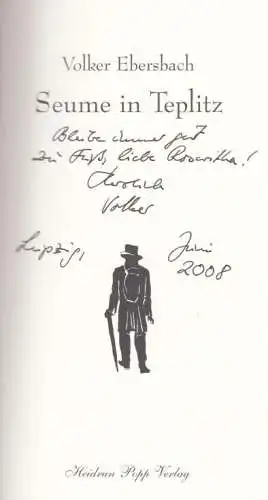 Volker Ebersbach
Seume in Teplitz
Bleibe immer gut
zu Fuß, liebe Roswitha!
Herzlich
Volker
Leipzig, Juni
2008
Heidrun Popp Verlag